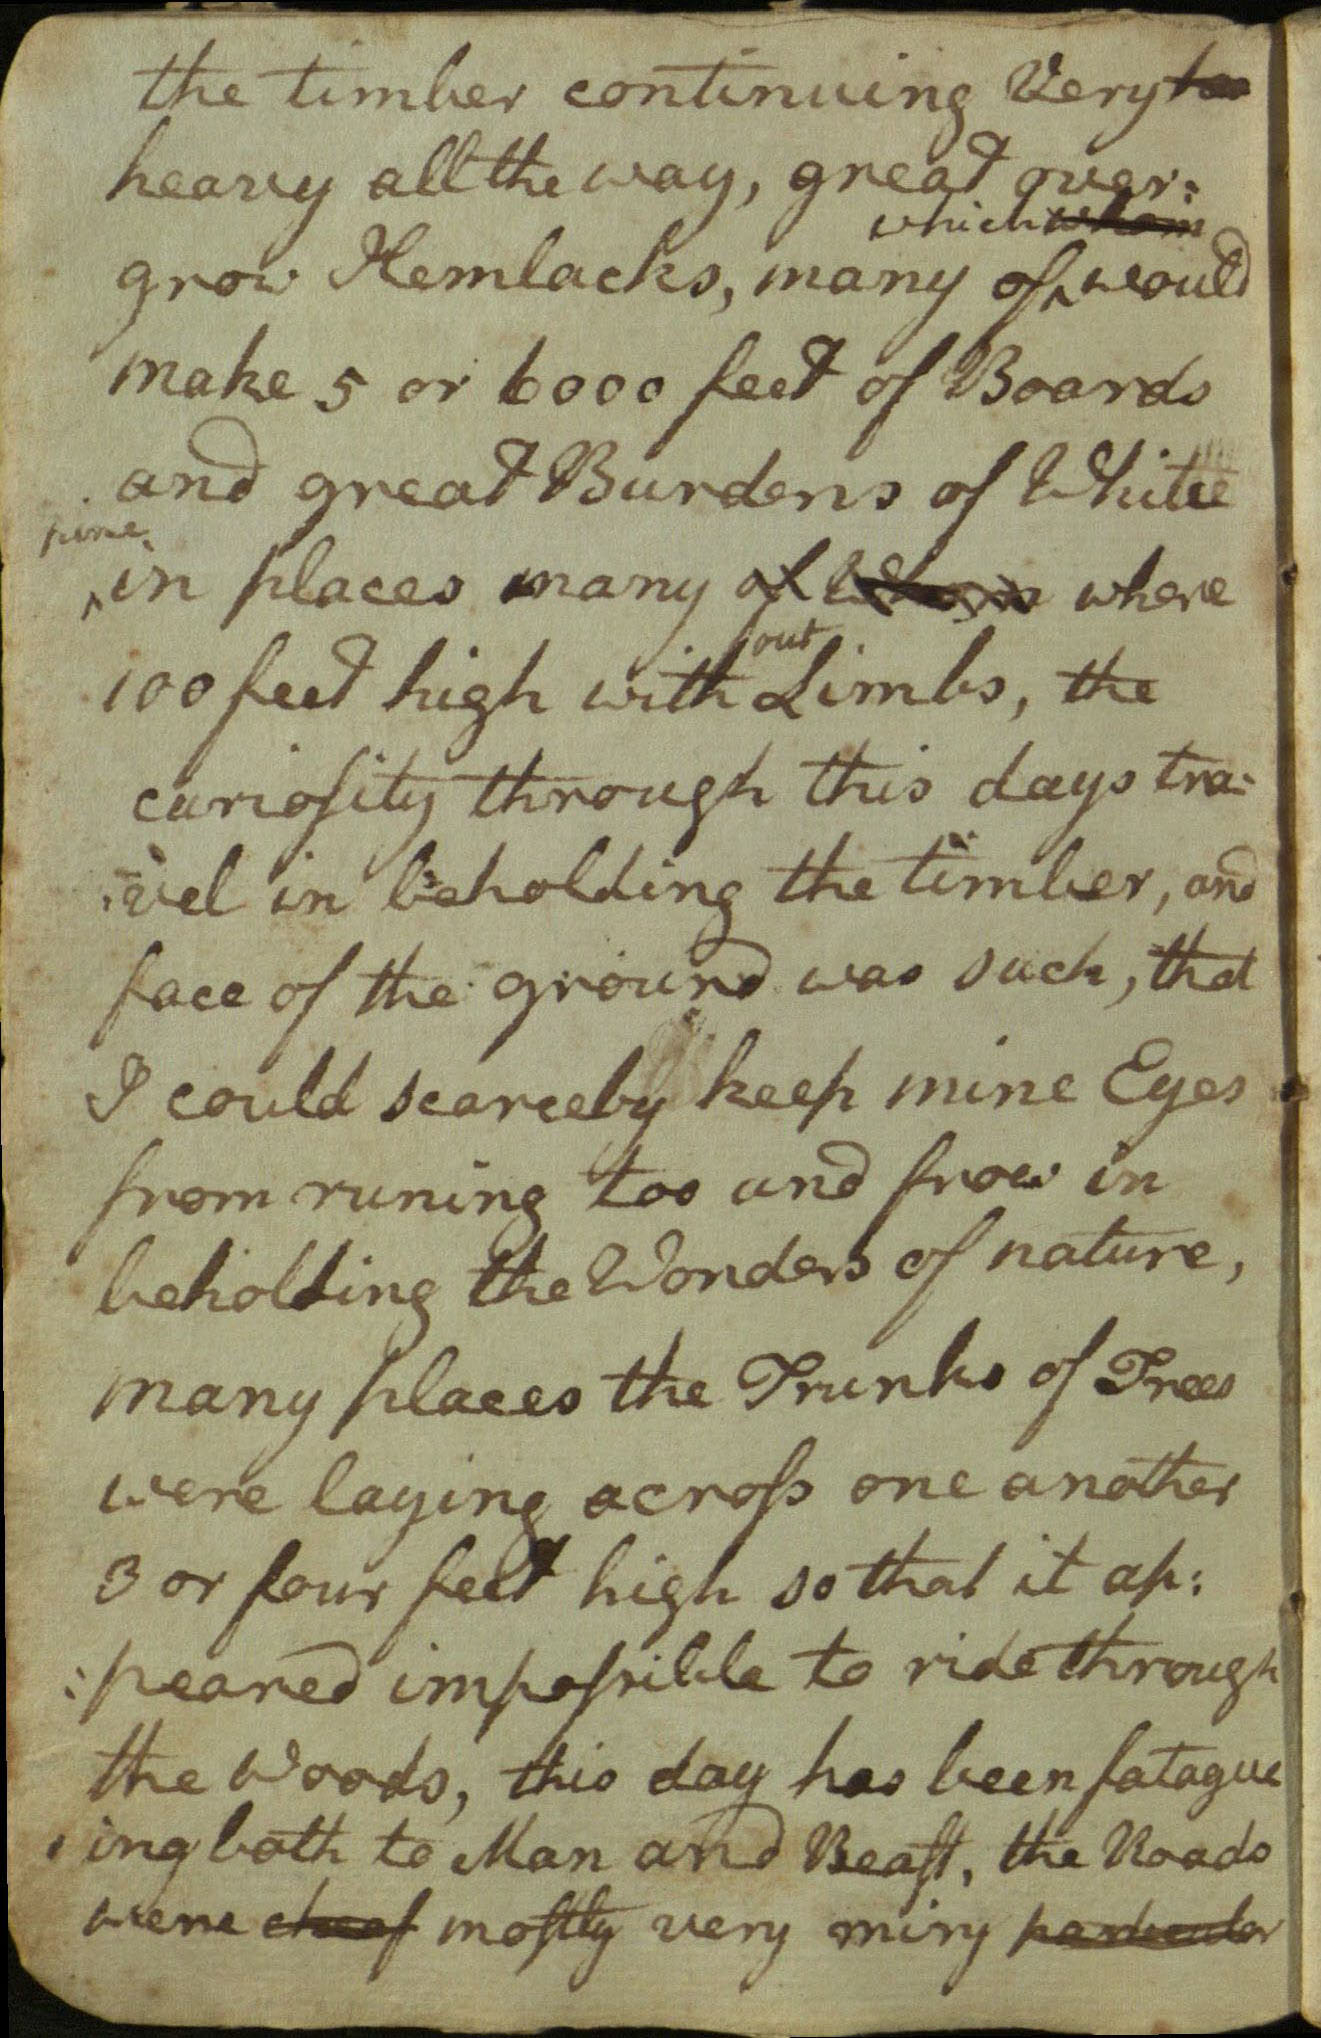 the timber continuing Very
heavy all the way, great over:
which whom
grow Hemlacks, many of ^ would
make 5 or 6000 feet of Boards
and great Burdens of White
pine
^ in places many of whom where
out
100 feet high with Limbs, the
curiosity through this days tra:
:vel in beholding the timber, and
face of the ground was such, that
I could scarcely keep mine Eyes
from runing too and frow in
beholding the Wonders of nature,
many places the Trunks of Trees
were laying across one another
3 or four feet high so that it ap:
:peared impossible to ride through
the Woods, this day has been fatague
:ing both to Man and Beast, the Roads
were cheef mostly very miry particular